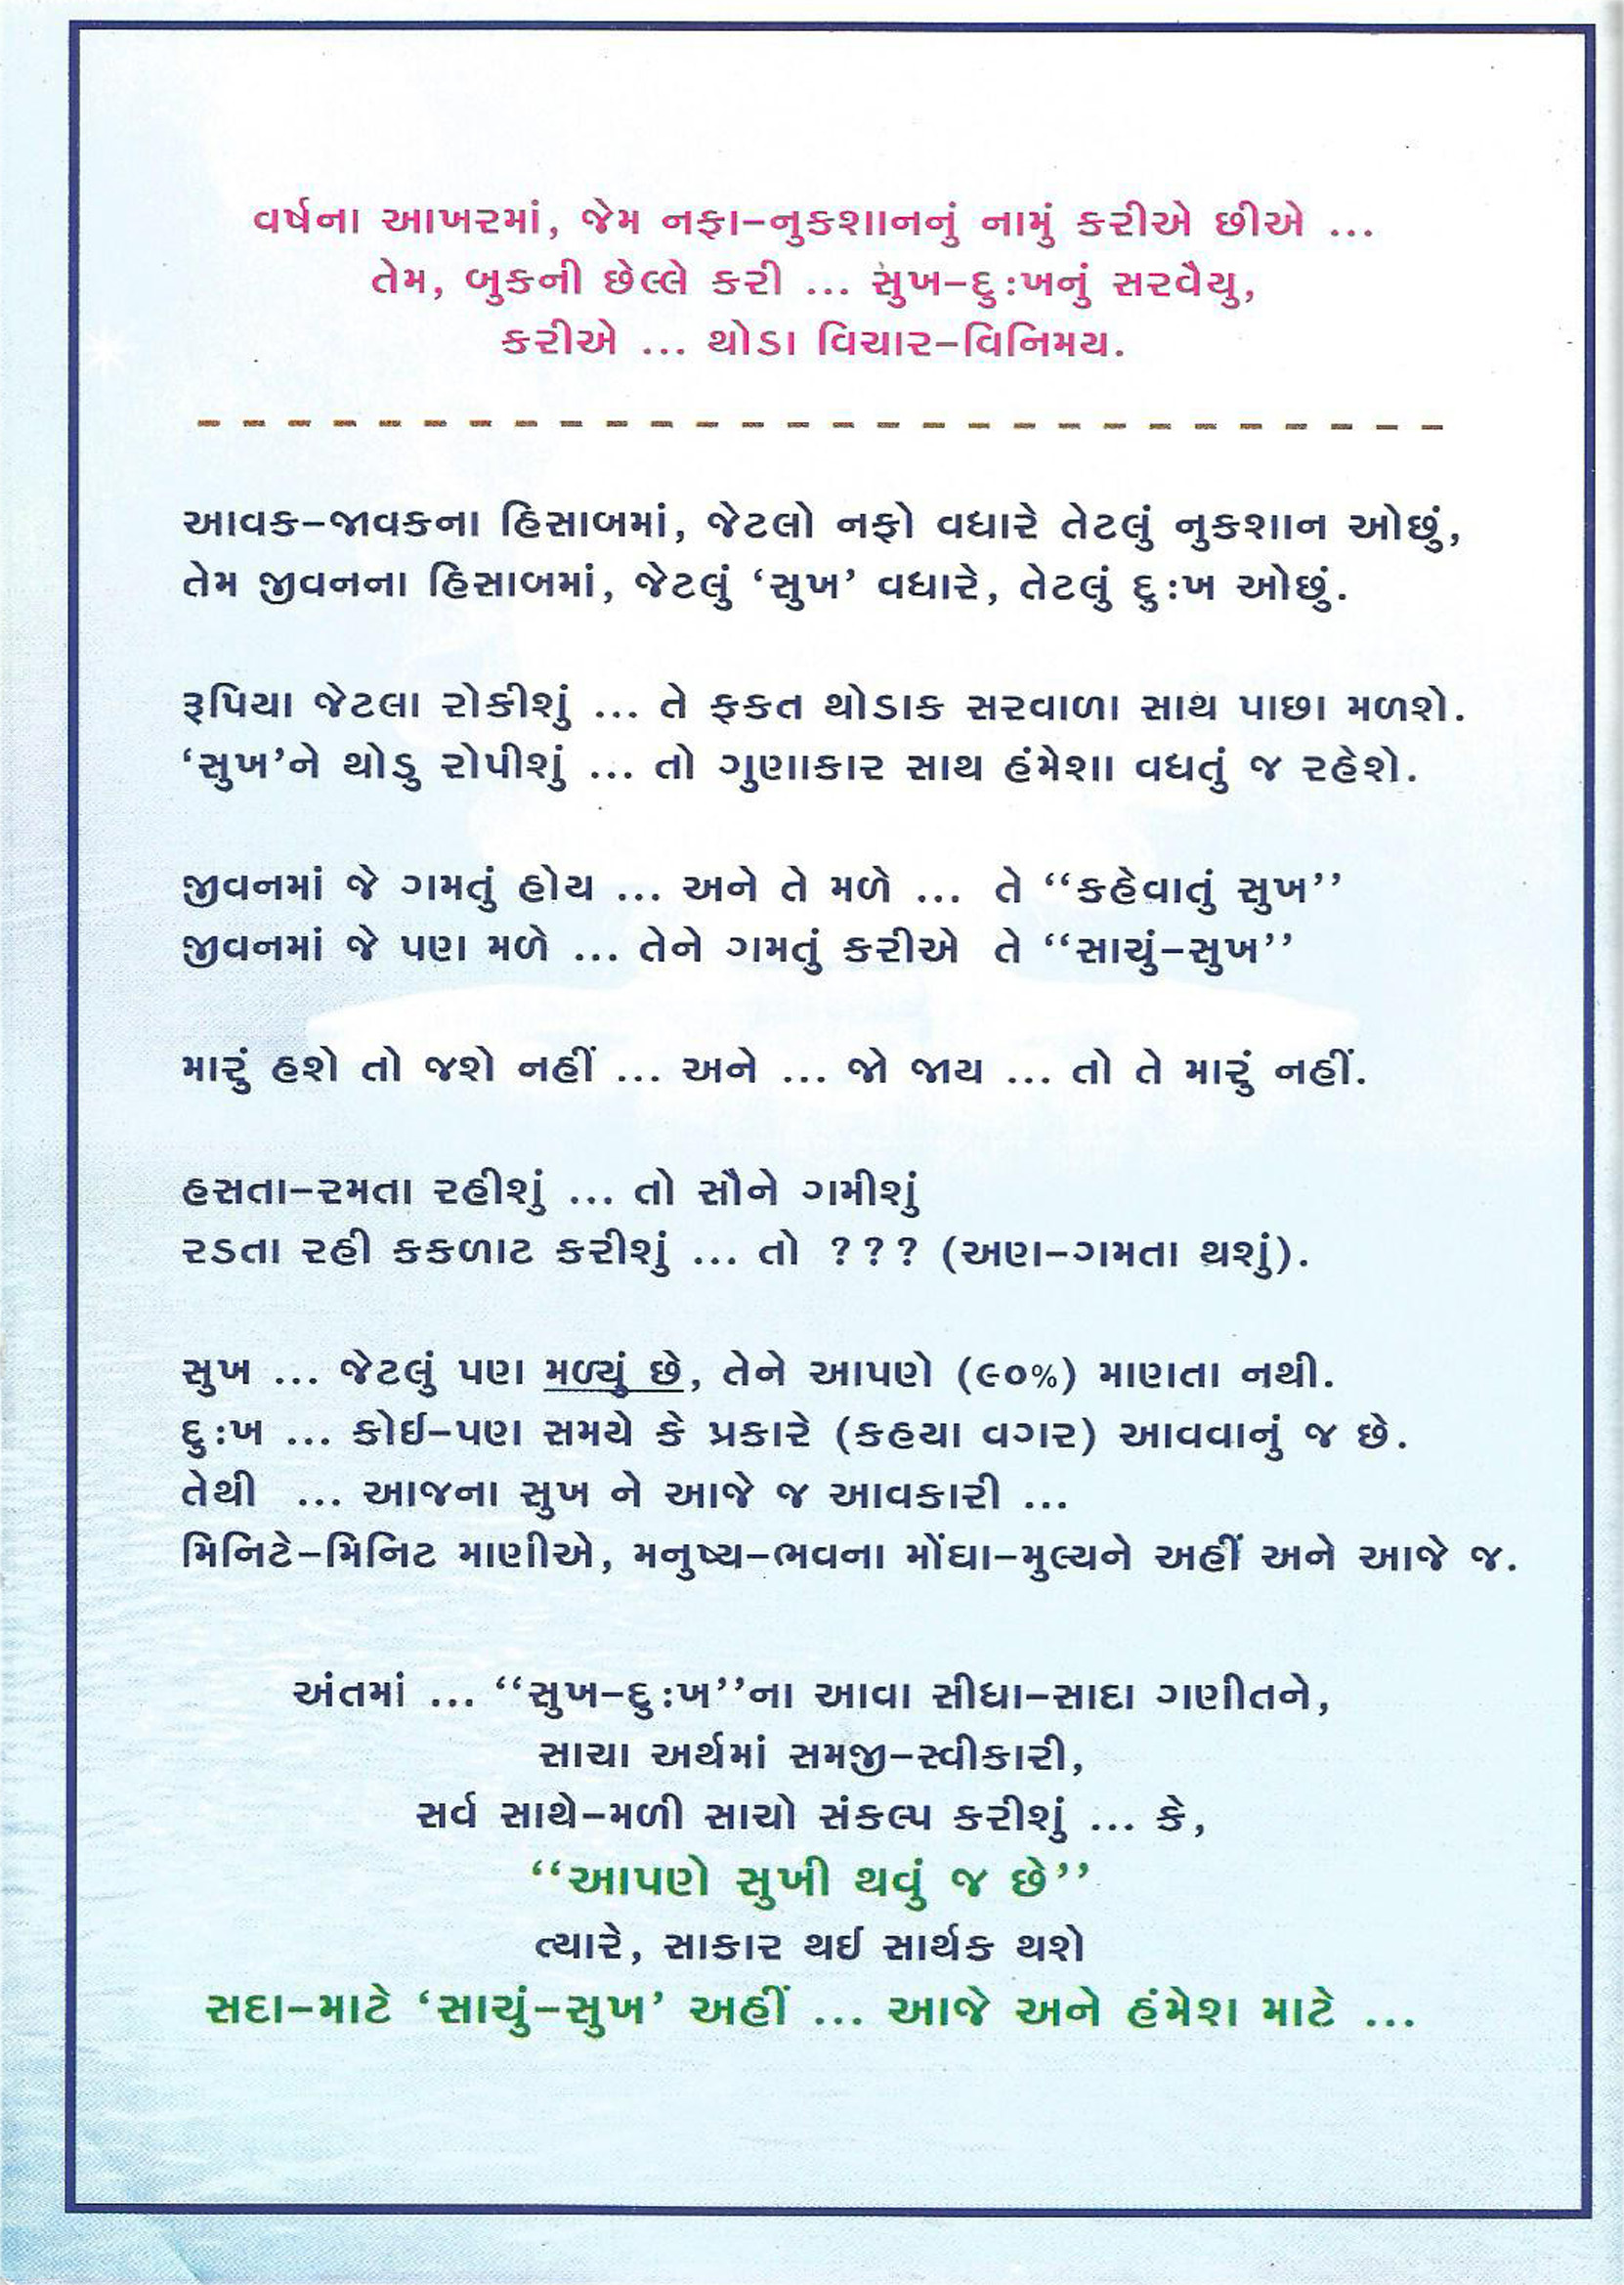 વર્ષના આખરમાં, જેમ નફા-નુકશાનનું નામું કરીએ છીએ ...
તેમ, બુકની છેલ્લે કરી ... સુખ-દુઃખનું સરવૈયુ,
કરીએ ... થોડા વિચાર-વિનિમય.
આવક-જાવકના હિસાબમાં, જેટલો નફો વધારે તેટલું નુકશાન ઓછું,
તેમ જીવનના હિસાબમાં, જેટલું ‘સુખ’ વધારે, તેટલું દુઃખ ઓછું.
રૂપિયા જેટલા રોકીશું ... તે ફકત થોડાક સરવાળા સાથ પાછા મળશે.
‘સુખ’ને થોડુ રોપીશું ... તો ગુણાકાર સાથ હંમેશા વધતું જ રહેશે.
જીવનમાં જે ગમતું હોય ... અને તે મળે ... તે “કહેવાતું સુખ”
જીવનમાં જે પણ મળે ... તેને ગમતું કરીએ તે “સાચું-સુખ”
મારું હશે તો જશે નહીં ... અને ... જો જાય ... તો તે મારું નહીં.
હસતા-રમતા રહીશું ... તો સૌને ગમીશું
રડતા રહી કકળાટ કરીશું ... તો ??? (અણ-ગમતા થશું).
સુખ ... જેટલું પણ મળ્યું છે, તેને આપણે (૯૦%) માણતા નથી.
દુઃખ ... કોઈ-પણ સમયે કે પ્રકારે (કહયા વગર) આવવાનું જ છે.
તેથી ... આજના સુખ ને આજે જ આવકારી ...
મિનિટે-મિનિટ માણીએ, મનુષ્ય-ભવના મોંઘા-મુલ્યને અહીં અને આજે જ.
અંતમાં ... “સુખ-દુઃખ”ના આવા સીધા-સાદા ગણીતને,
સાચા અર્થમાં સમજી-સ્વીકારી,
સર્વ સાથે-મળી સાચો સંકલ્પ કરીશું ... કે,
“આપણે સુખી થવું જ છે”
ત્યારે, સાકાર થઈ સાર્થક થશે
સદા-માટે ‘સાચું-સુખ’ અહીં ... આજે અને હંમેશ માટે ...